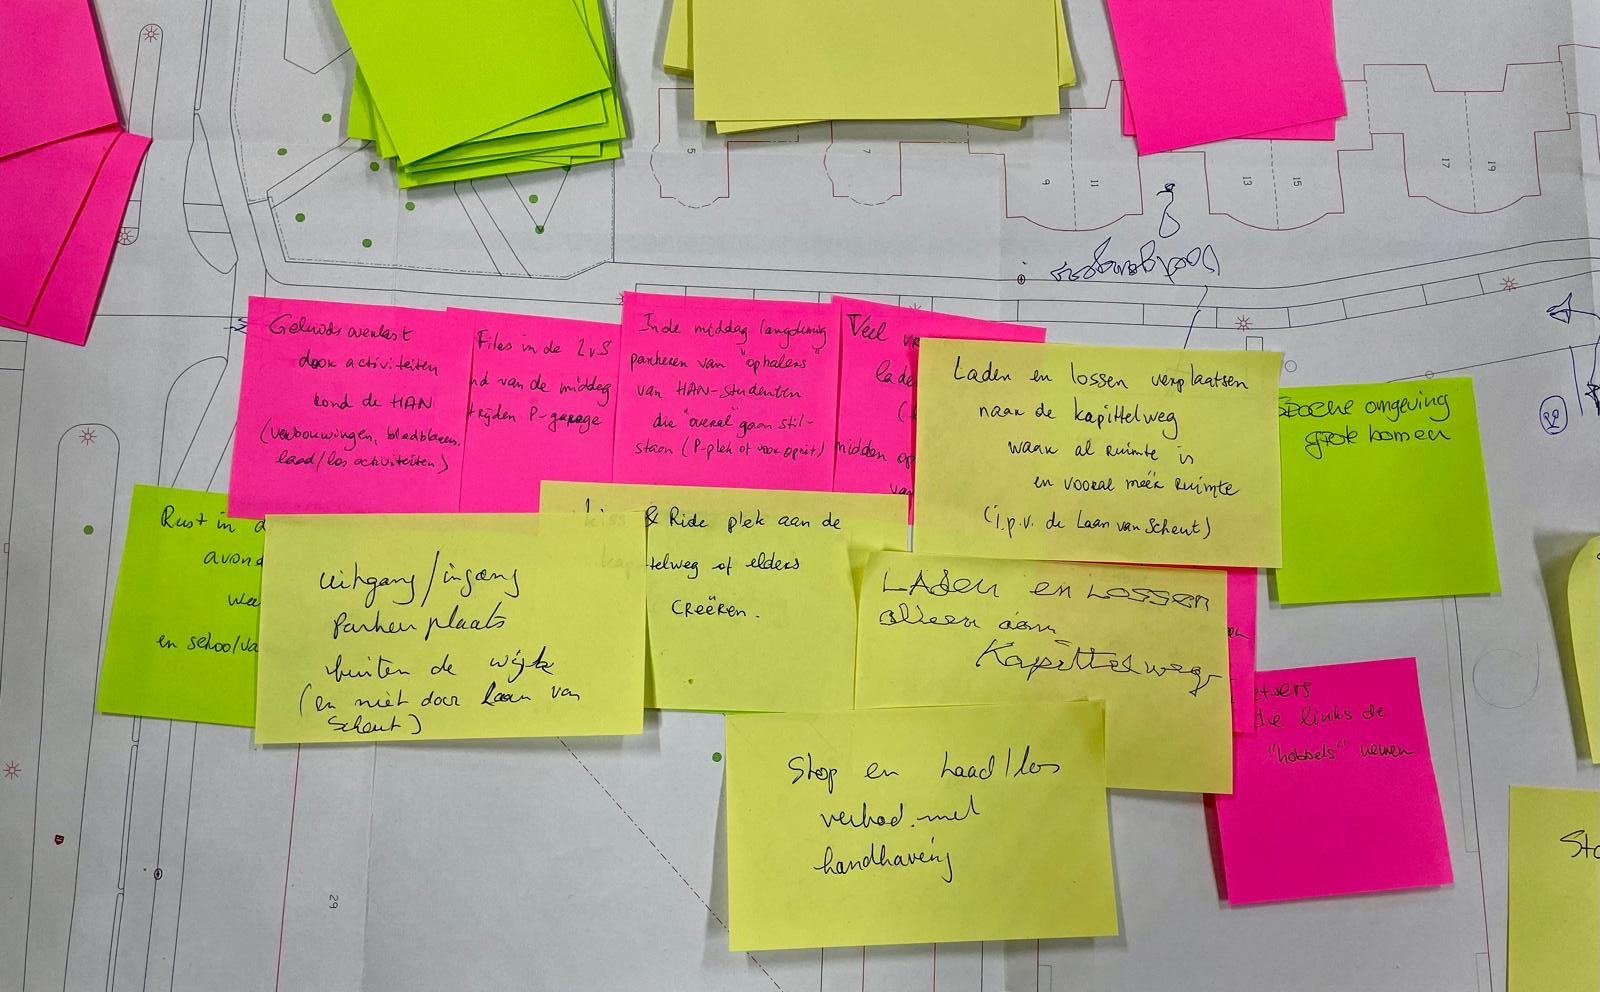 5
7
9
11
13
15
17
19
Geluidsoverlast
door activiteiten
rond de HAN
(verbouwingen, bladblazen,
laad/los activiteiten)
Files in de LvS
nd van de middag
trijden P-garage
In de middag langdurig
parkeren van "ophalers"
van HAN-studenten
die "overal" gaan stil-
staan (P-plek of voor oprit)
Veel
lade
(
midden op
van
Laden en lossen verplaatsen
naar de kapittelweg
waar al ruimte is
en vooral méér ruimte
(i.p.v. de Laan van Scheut)
Groene omgeving
grote bomen
Rust in d
avond
wee
en school/va
uitgang/ingang
Parkeerplaats
buiten de wijk
(en niet door Laan van
Scheut)
Kiss & Ride plek aan de
kapittelweg of elders
CREËREN.
LADEN EN LOSSEN
alleen aan
Kapittelweg
etsers
die links de
"hobbels" nemen
Stop en Laad/los
verbod met
handhaving
29
Sto